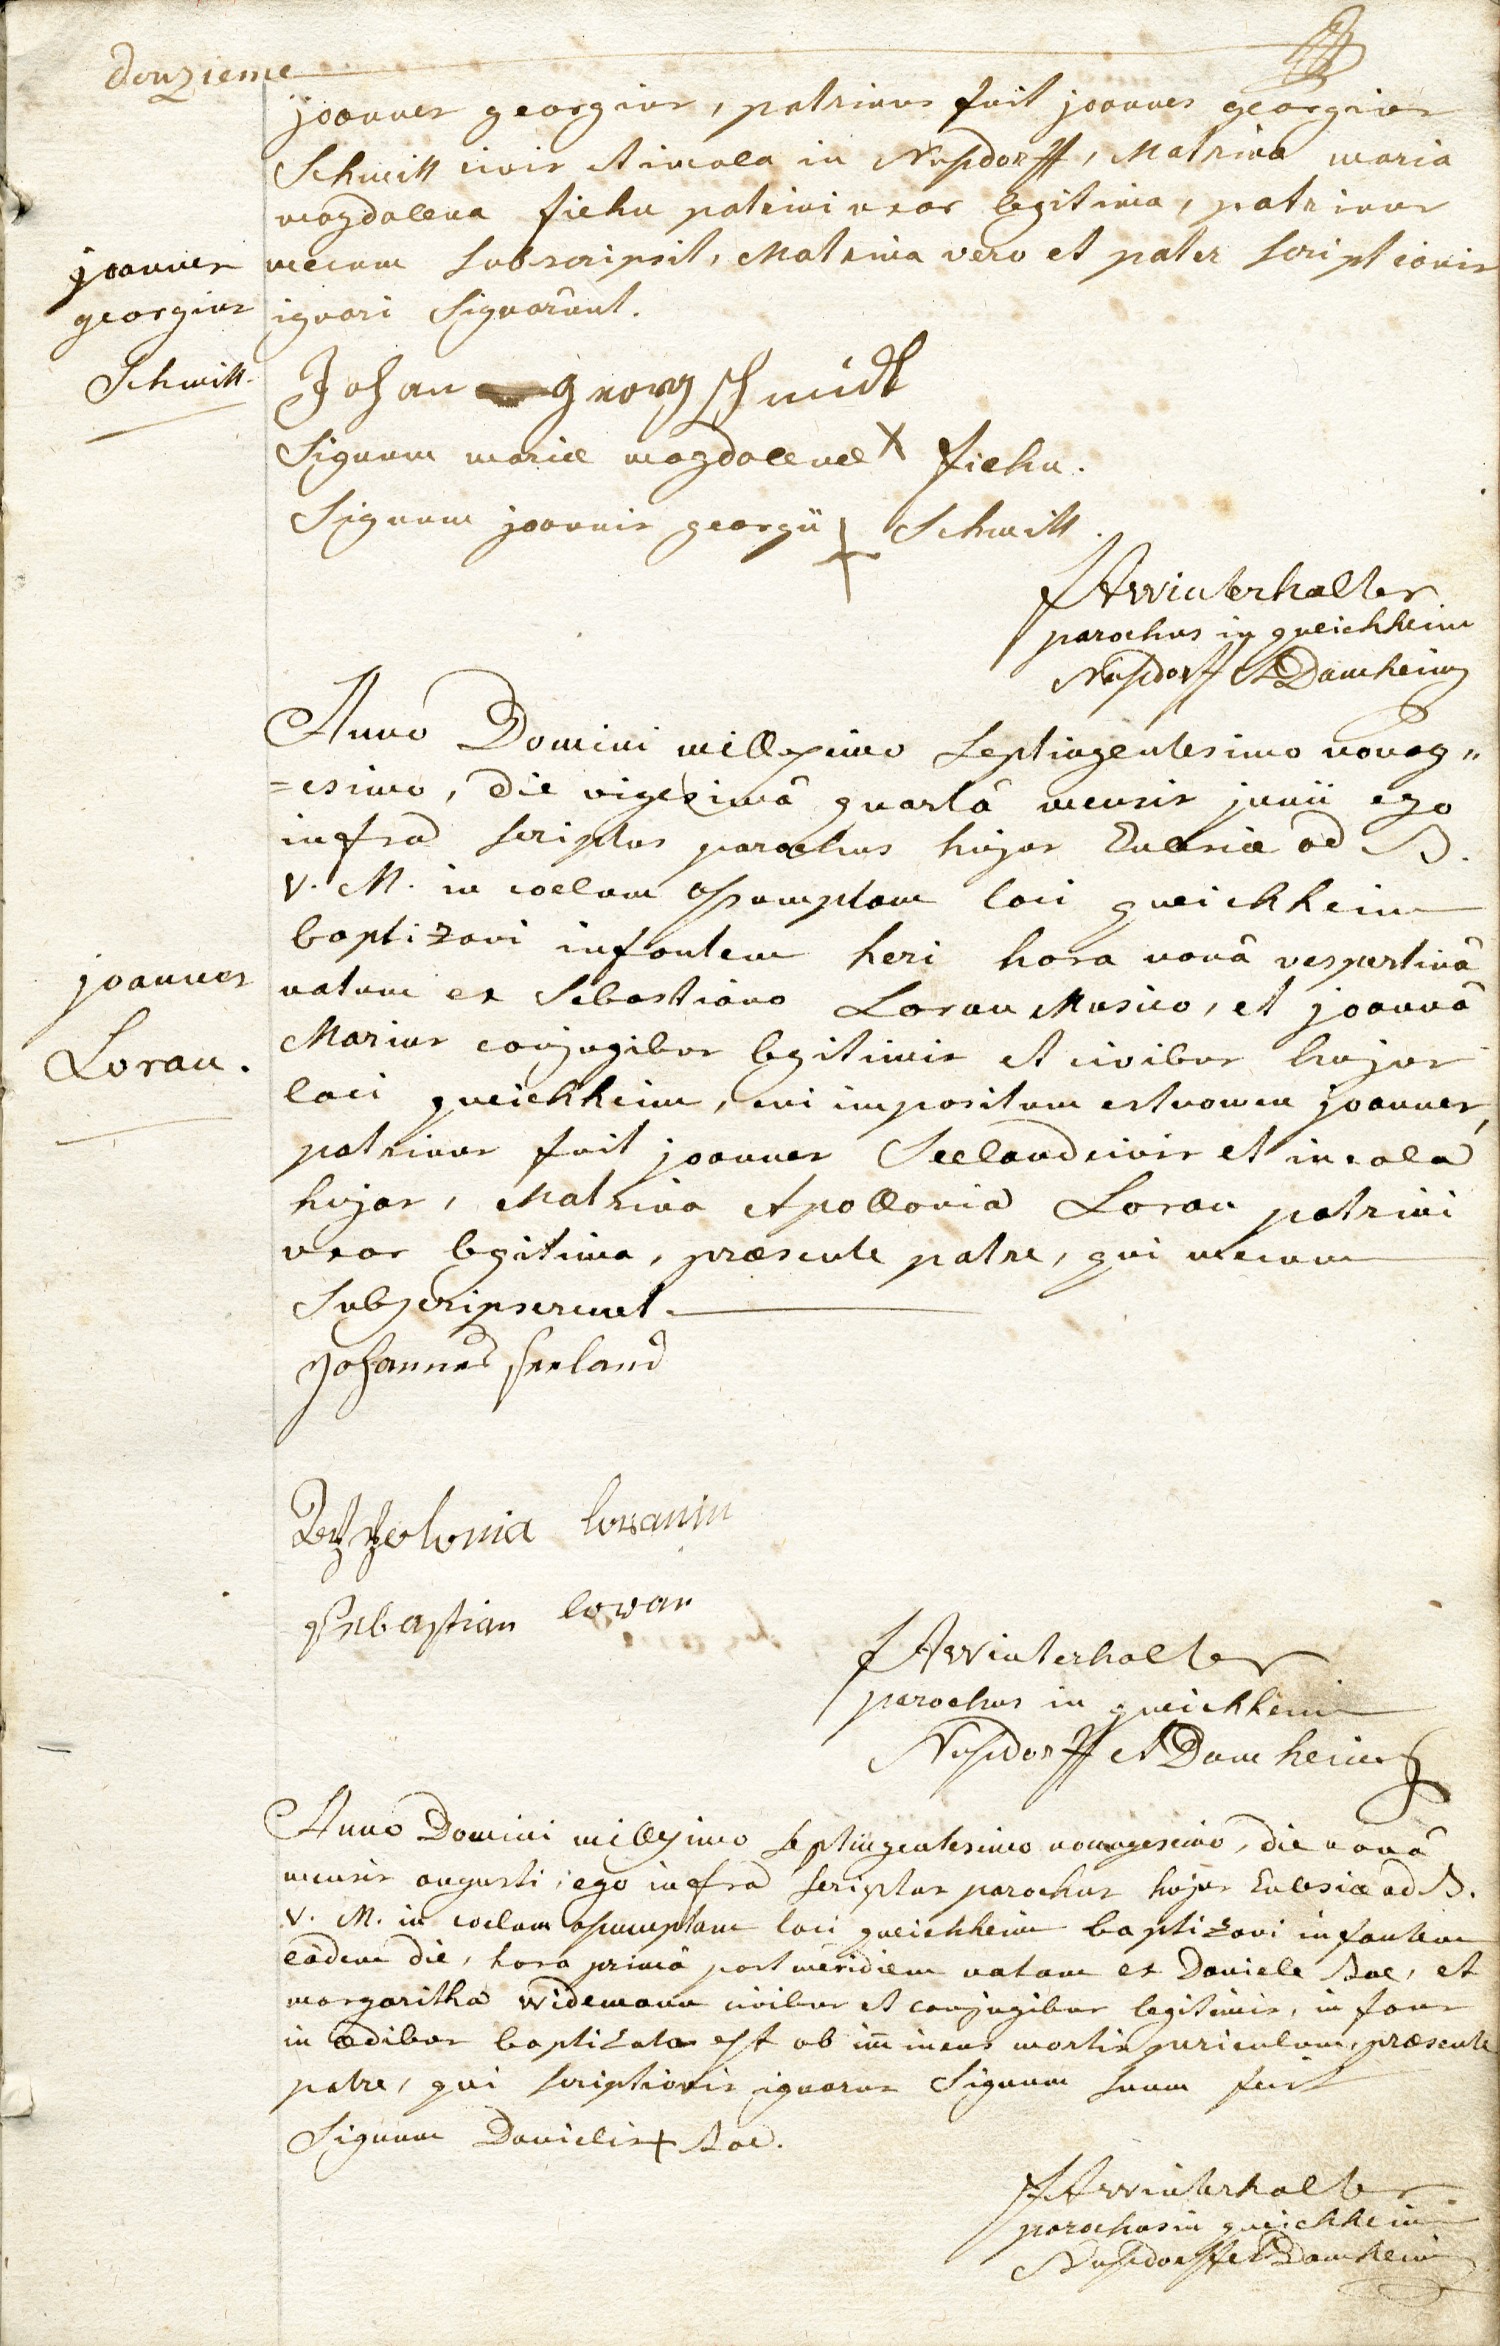 douzieme
joannes georgius, patrinus fuit joannes georgius
Schmitt civis et incola in Nusdorff, Matrina maria
magdalena fiehn patrini uxor legitima, patrinus
mecum subscripsit, Matrina vero et pater scriptionis
ignari signarunt.
joannes
georgius
Schmitt.
Johan georg schmidt
Signum mariæ magdalenæ X fiehn.
Signum joannis georgii + Schmitt.
FAWinterhalter
parochus in queichheim
Nusdorff et Damheim
Anno Domini millesimo septingentesimo nonag"
=esimo, die vigesimâ quartâ mensis junii ego
infra scriptus parochus hujus Ecclesiæ ad B.
V. M. in coelum assumptam loci queichheim
baptizavi infantem heri hora nonâ vespertinâ
natum ex Sebastiano Loran Musico, et joannâ
Marius conjugibus legitimis et civibus hujus
loci queichheim, cui impositum est nomen joannes,
patrinus fuit joannes Seeland civis et incola
hujas, Matrina Apollonia Loran patrini
uxor legitima, præsente patre, qui mecum
subscripserunt.
joannes
Loran.
Johannes seeland
Appolonia loranin
Sebastian loran
FAWinterhalter
parochus in queichheim
Nusdorff et Damheim
Anno Domini millesimo septingentesimo nonagesimo, die nonâ
mensis augusti, ego infra scriptus parochus hujus Ecclesiæ ad B.
V. M. in coelum assumptam loci queichheim baptizavi infantem
eâdem die, hora primâ post meridiem natam ex Daniele Boe, et
margaritha Widemann civibus et conjugibus legitimis, infans
in ædibus baptizata est ob im̅inens mortis periculum, præsente
patre, qui scriptionis ignarus Signum suum fecit
Signum Danielis + Boe.
FAWinterhalter
parochus in queichheim
Nusdorff et Damheim